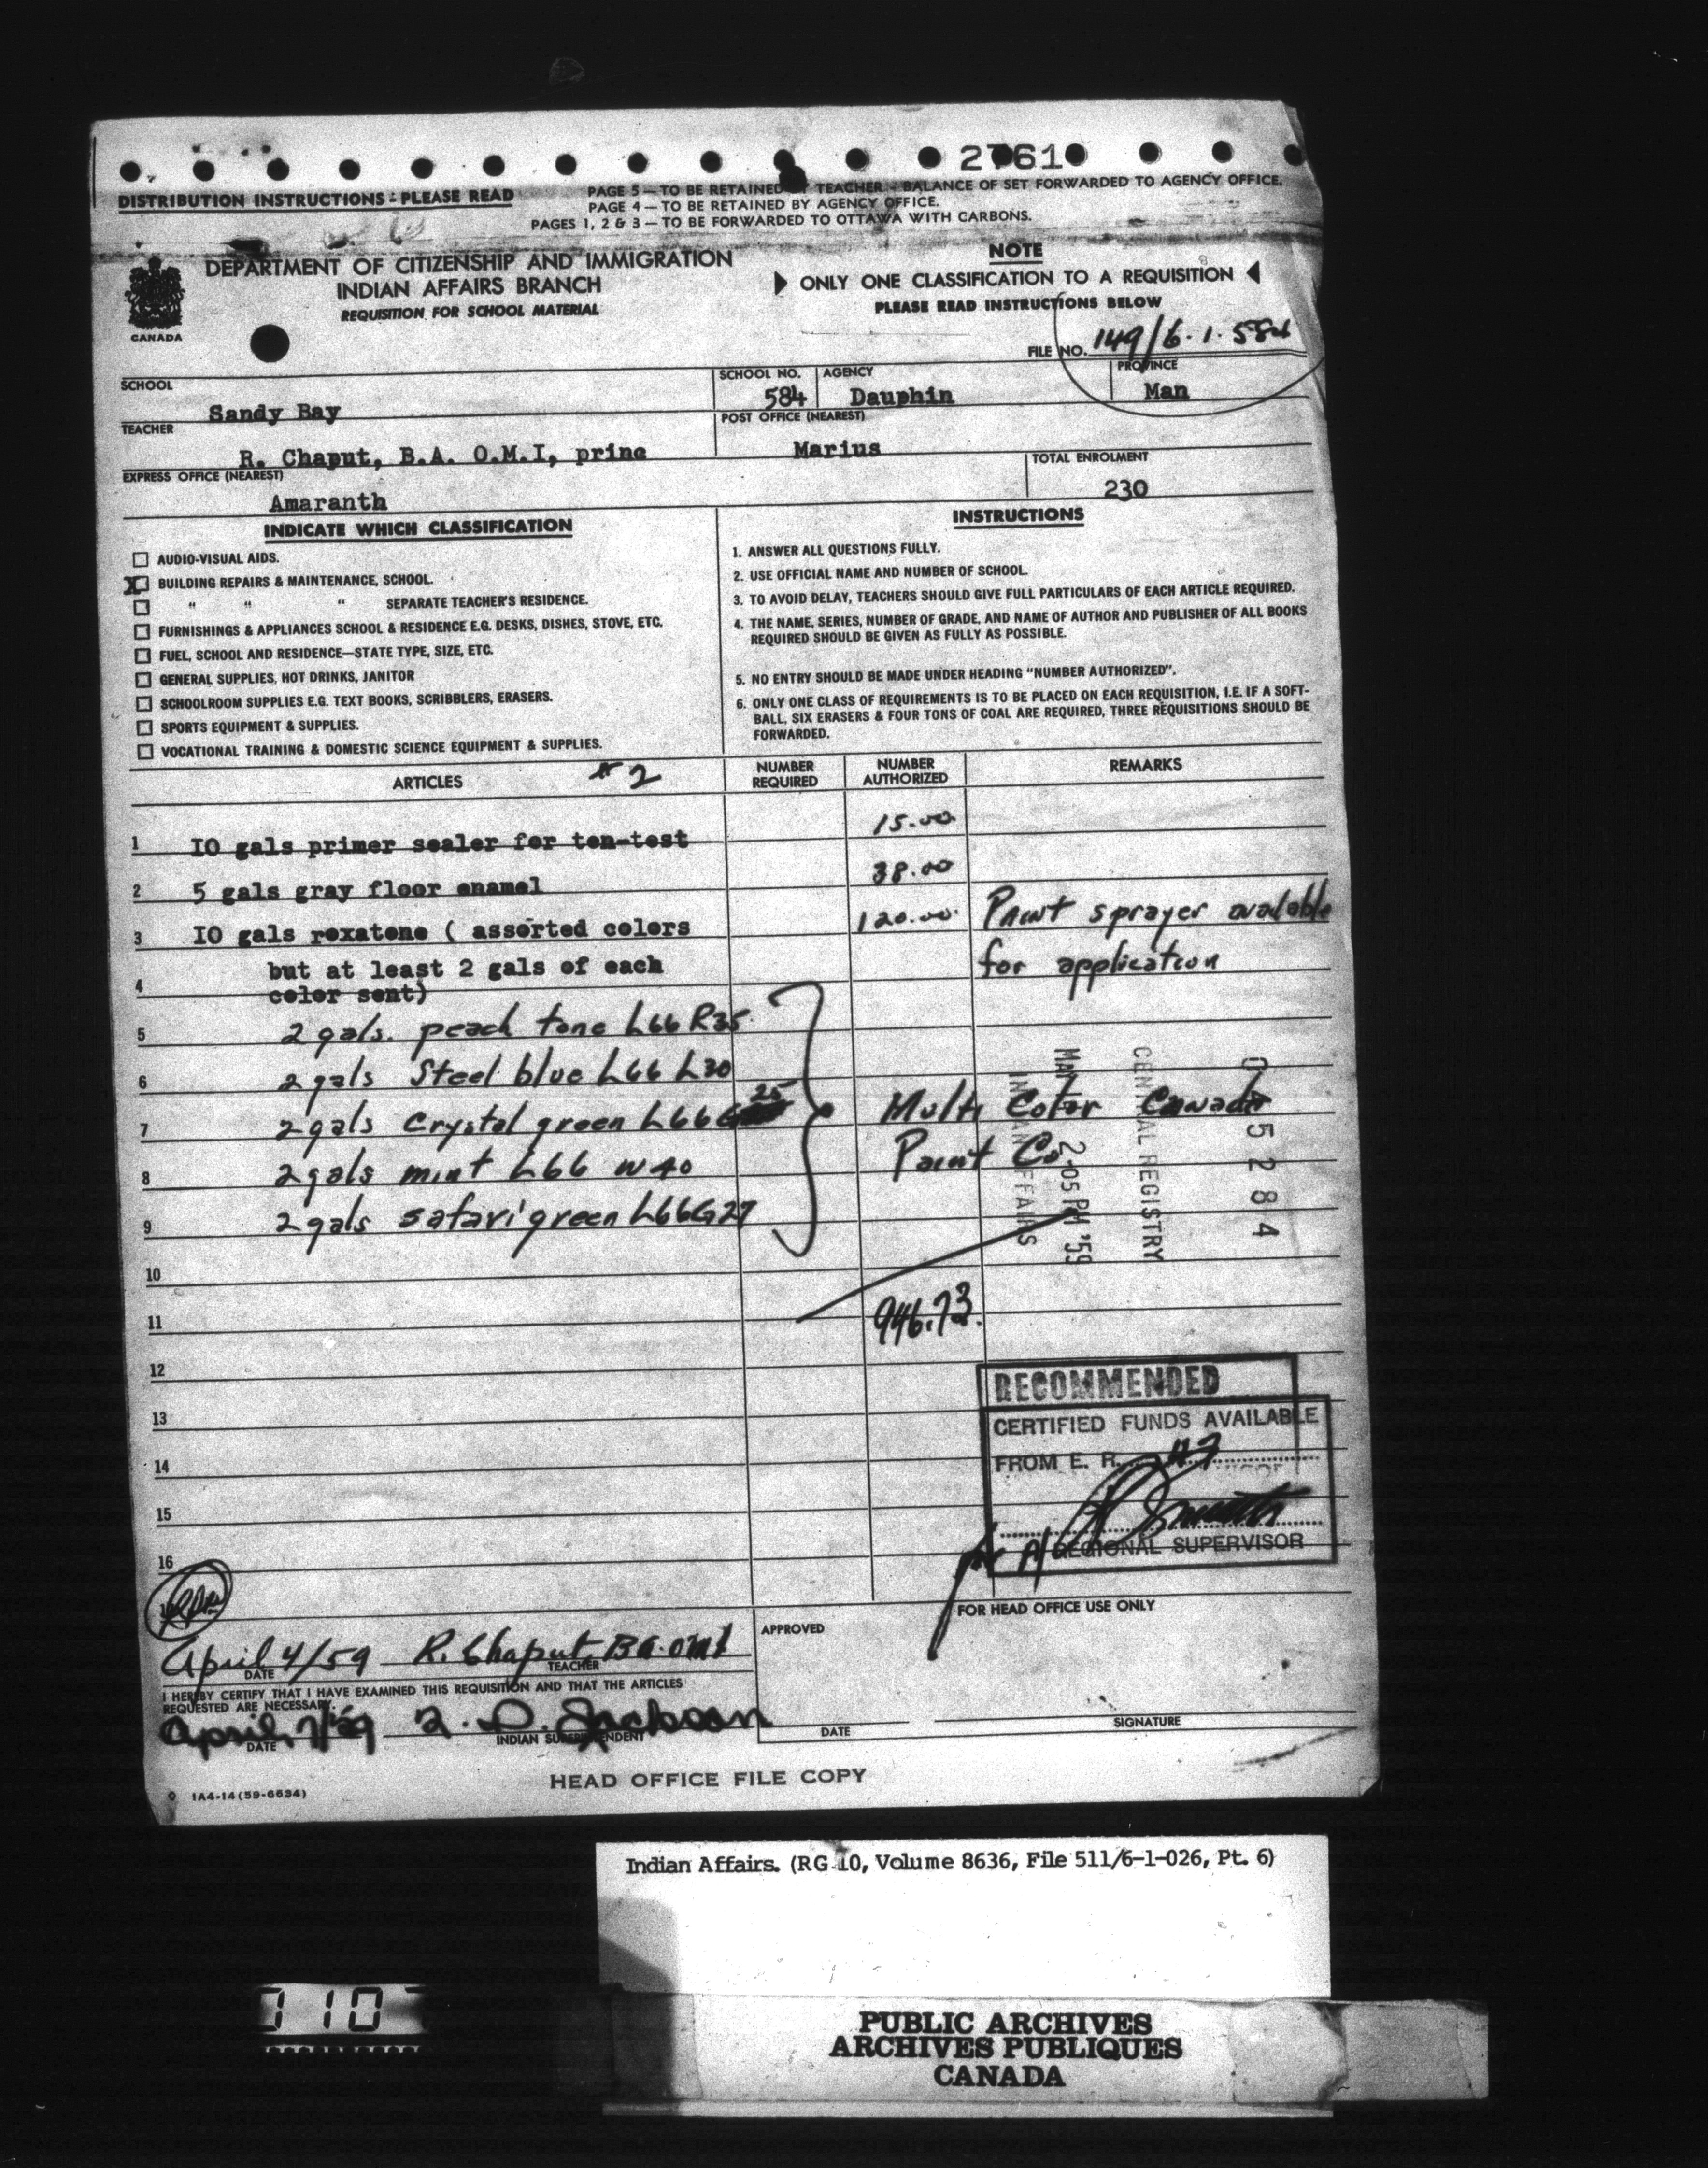 2761
DISTRIBUTION INSTRUCTIONS - PLEASE READ
PAGE 5 — TO BE RETAINED BY TEACHER - BALANCE OF SET FORWARDED TO AGENCY OFFICE.
PAGE 4 — TO BE RETAINED BY AGENCY OFFICE.
PAGES 1, 2 & 3 — TO BE FORWARDED TO OTTAWA WITH CARBONS.
CANADA
DEPARTMENT OF CITIZENSHIP AND IMMIGRATION
INDIAN AFFAIRS BRANCH
REQUISITION FOR SCHOOL MATERIAL
NOTE
ONLY ONE CLASSIFICATION TO A REQUISITION
PLEASE READ INSTRUCTIONS BELOW
FILE NO. 149/6.1.584
SCHOOL Sandy Bay
SCHOOL NO. 584
AGENCY Dauphin
PROVINCE Man
TEACHER R. Chaput, B.A. O.M.I, princ
POST OFFICE (NEAREST) Marius
EXPRESS OFFICE (NEAREST) Amaranth
TOTAL ENROLMENT 230
INDICATE WHICH CLASSIFICATION
AUDIO-VISUAL AIDS.
X BUILDING REPAIRS & MAINTENANCE, SCHOOL.
" " " SEPARATE TEACHER'S RESIDENCE.
FURNISHINGS & APPLIANCES SCHOOL & RESIDENCE E.G. DESKS, DISHES, STOVE, ETC.
FUEL, SCHOOL AND RESIDENCE—STATE TYPE, SIZE, ETC.
GENERAL SUPPLIES, HOT DRINKS, JANITOR
SCHOOLROOM SUPPLIES E.G. TEXT BOOKS, SCRIBBLERS, ERASERS.
SPORTS EQUIPMENT & SUPPLIES.
VOCATIONAL TRAINING & DOMESTIC SCIENCE EQUIPMENT & SUPPLIES.
INSTRUCTIONS
1. ANSWER ALL QUESTIONS FULLY.
2. USE OFFICIAL NAME AND NUMBER OF SCHOOL.
3. TO AVOID DELAY, TEACHERS SHOULD GIVE FULL PARTICULARS OF EACH ARTICLE REQUIRED.
4. THE NAME, SERIES, NUMBER OF GRADE, AND NAME OF AUTHOR AND PUBLISHER OF ALL BOOKS
REQUIRED SHOULD BE GIVEN AS FULLY AS POSSIBLE.
5. NO ENTRY SHOULD BE MADE UNDER HEADING "NUMBER AUTHORIZED".
6. ONLY ONE CLASS OF REQUIREMENTS IS TO BE PLACED ON EACH REQUISITION, I.E. IF A SOFT-
BALL, SIX ERASERS & FOUR TONS OF COAL ARE REQUIRED, THREE REQUISITIONS SHOULD BE
FORWARDED.
ARTICLES # 2
NUMBER REQUIRED
NUMBER AUTHORIZED
REMARKS
1 IO gals primer sealer for ten-test 15.00
2 5 gals gray floor enamel 38.00
3 IO gals rexatone ( assorted colors 120.00 Paint sprayer available
4 but at least 2 gals of each for application
color sent)
5 2 gals. peach tone L66 R35
6 2 gals Steel blue L66 L30
7 2 gals Crystal green L66 G 25 Multi Color Canada
8 2 gals mint L66 W40 Paint Co.
9 2 gals safari green L66G27
10
11 946.73
12
13
14
15
16
INDIAN AFFAIRS
MAY 2-05 PM '59
CENTRAL REGISTRY
0 5 2 8 4
RECOMMENDED
CERTIFIED FUNDS AVAILABLE
FROM E. R.
for A/ REGIONAL SUPERVISOR
FOR HEAD OFFICE USE ONLY
April 4/59 R. Chaput BA. omi
DATE TEACHER
I HEREBY CERTIFY THAT I HAVE EXAMINED THIS REQUISITION AND THAT THE ARTICLES
REQUESTED ARE NECESSARY.
April 7/59
DATE INDIAN SUPERINTENDENT
APPROVED
DATE
SIGNATURE
HEAD OFFICE FILE COPY
1A4-14 (59-6634)
Indian Affairs. (RG 10, Volume 8636, File 511/6-1-026, Pt. 6)
PUBLIC ARCHIVES
ARCHIVES PUBLIQUES
CANADA